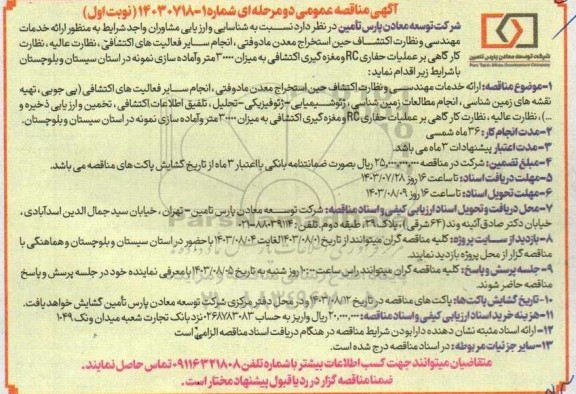 آگهی مناقصه عمومی دو مرحله ای شماره ۱-۱۴۰۳۰۷۱۸ (نوبت اول)
شرکت توسعه معادن پارس تأمین
Pars Tamin Mines Development Company
شرکت توسعه معادن پارس تأمین در نظر دارد نسبت به شناسایی و ارزیابی مشاوران واجد شرایط به منظور ارائه خدمات
مهندسی و نظارت اکتشاف حین استخراج معدن مادوفتی، انجام سایر فعالیت های اکتشافی، نظارت عالیه، نظارت
کارگاهی بر عملیات حفاری RC و مغزه گیری اکتشافی به میزان ۳۰۰۰۰ متر و آماده سازی نمونه در استان سیستان و بلوچستان
با شرایط زیر اقدام نماید:
۱-موضوع مناقصه: ارائه خدمات مهندسی و نظارت اکتشاف حین استخراج معدن مادوفتی، انجام سایر فعالیت های اکتشافی (پی جویی، تهیه
نقشه های زمین شناسی، انجام مطالعات زمین شناسی، ژئوشیمیایی-ژئوفیزیکی-تحلیل، تلفیق اطلاعات اکتشافی، تخمین و ارزیابی ذخیره و
...)، نظارت عالیه، نظارت کارگاهی بر عملیات حفاری RC و مغزه گیری اکتشافی به میزان ۳۰۰۰۰ متر و آماده سازی نمونه در استان سیستان و بلوچستان.
۲-مدت انجام کار: ۳۶ ماه شمسی
۳-مدت اعتبار پیشنهادات ۳ ماه می باشد.
۴-مبلغ تضمین: شرکت در مناقصه ۲۵,۰۰۰,۰۰۰,۰۰۰ ریال بصورت ضمانتنامه بانکی با اعتبار ۳ ماه از تاریخ گشایش پاکت های مناقصه می باشد.
۵-مهلت دریافت اسناد: تا ساعت ۱۶ روز ۱۴۰۳/۰۷/۲۸
۶-مهلت تحویل اسناد: تا ساعت ۱۶ روز ۱۴۰۳/۰۸/۰۹
۷-محل دریافت و تحویل اسناد ارزیابی کیفی و اسناد مناقصه: شرکت توسعه معادن پارس تامین-تهران، خیابان سید جمال الدین اسدآبادی،
خیابان دکتر صادق آئینه وند (۶۴ شرقی)، پلاک ۲۹، طبقه دوم. تلفن: ۸۸۰۳۹۱۱۴-۰۲۱
۸-بازدید از سایت پروژه: کلیه مناقصه گران میتوانند از تاریخ ۱۴۰۳/۰۸/۰۱ لغایت ۱۴۰۳/۰۸/۰۴ با حضور در استان سیستان و بلوچستان و هماهنگی با
مناقصه گزار از محل پروژه بازدید نمایند.
۹-جلسه پرسش و پاسخ: کلیه مناقصه گران میتوانند راس ساعت ۱۰:۰۰ روز شنبه به تاریخ ۱۴۰۳/۰۸/۰۵ با معرفی نماینده خود در جلسه پرسش و پاسخ
مناقصه حاضر شوند.
۱۰-تاریخ گشایش پاکت ها: پاکت های مناقصه در تاریخ ۱۴۰۳/۰۸/۱۲ و در محل دفتر مرکزی شرکت توسعه معادن پارس تأمین گشایش خواهد یافت.
۱۱-هزینه خرید اسناد ارزیابی کیفی و اسناد مناقصه: ۲۰,۰۰۰,۰۰۰ ریال واریز به حساب ۰۲۶۸۷۸۳۰۸۳ نزد بانک تجارت شعبه میدان ونک ۱۰۴۹
۱۲-ارائه اسناد مثبته نشان دهنده دارا بودن شرایط مناقصه در هنگام دریافت اسناد مناقصه الزامی است
۱۳-سایر جزئیات مربوطه: در اسناد مناقصه درج شده است.
متقاضیان میتوانند جهت کسب اطلاعات بیشتر با شماره تلفن ۰۹۱۱۶۳۲۱۸۰۸ تماس حاصل نمایند.
ضمنا مناقصه گزار در رد یا قبول پیشنهاد مختار است.